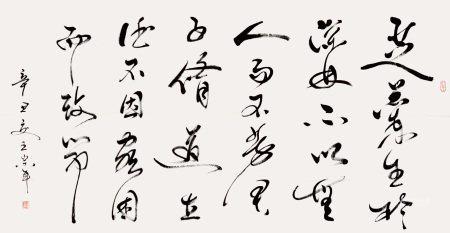 芝蘭生於
深林不以無
人而不芳君
子修道立
德不因窮困
而改節
辛丑夏